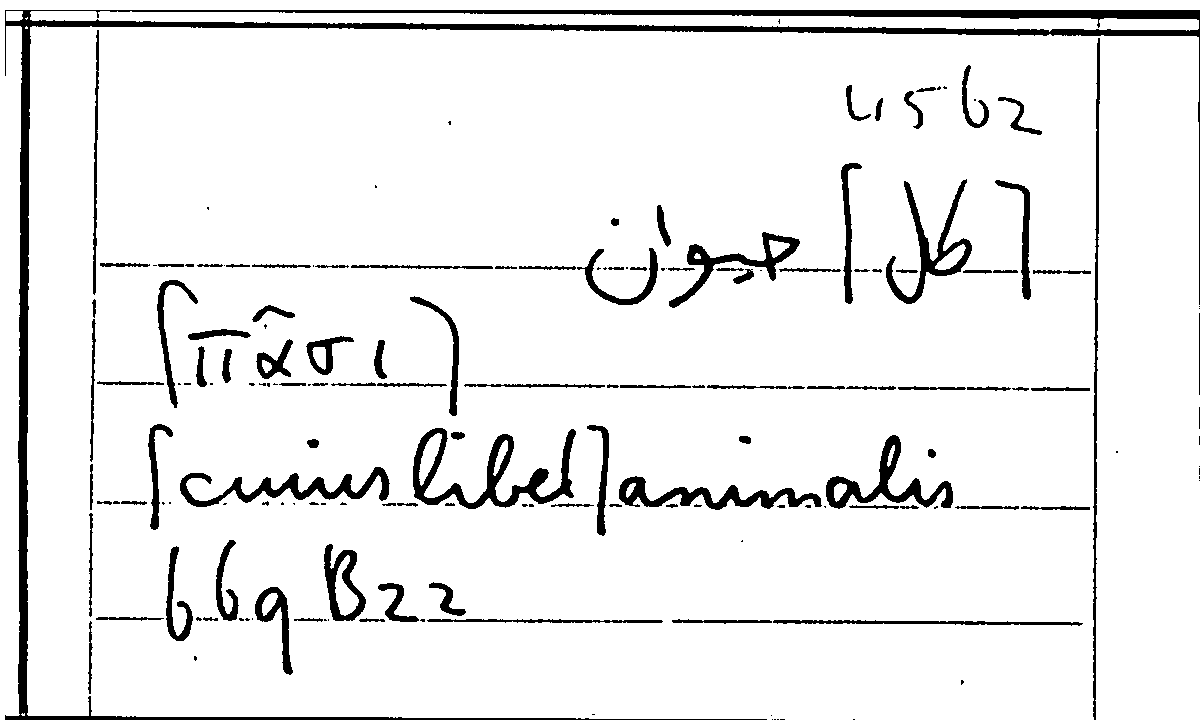 4562
[كل] حيوان
[πᾶσι]
[cuiuslibet] animalis
669 B22